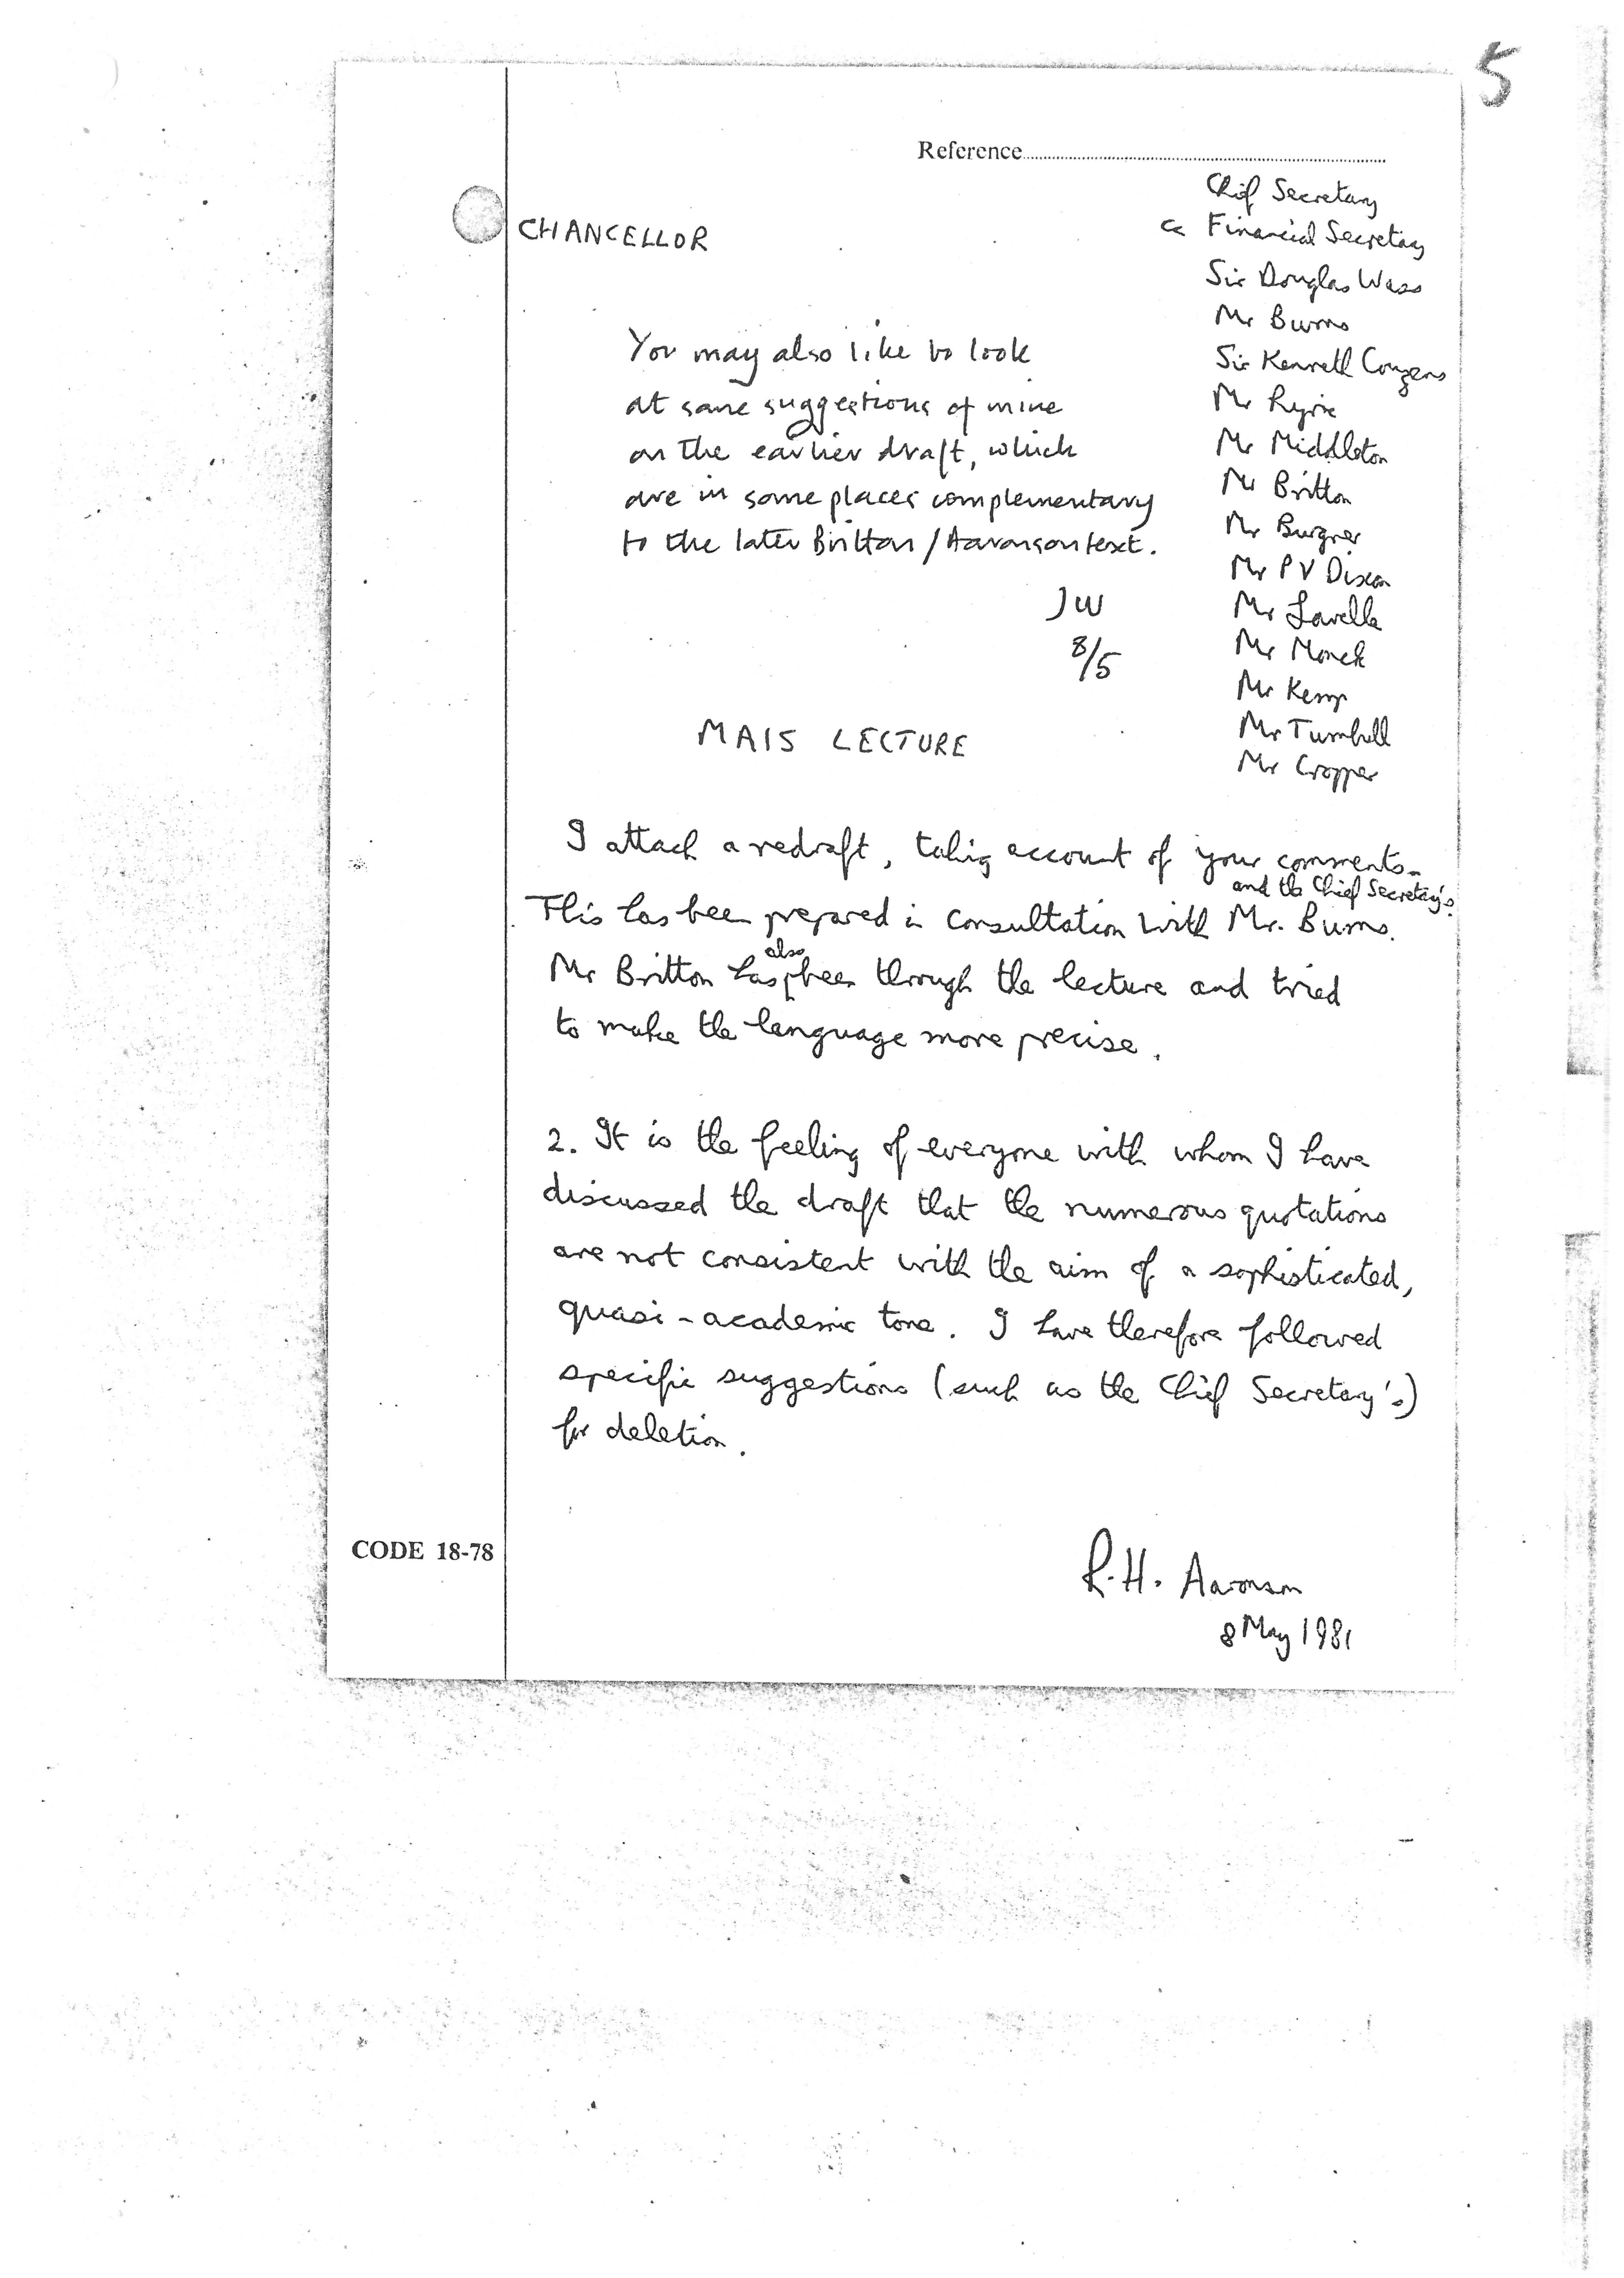 5
Reference
CHANCELLOR
Chief Secretary
cc Financial Secretary
Sir Douglas Wass
Mr Burns
Sir Kenneth Couzens
Mr Ryrie
Mr Middleton
Mr Britton
Mr Burgner
Mr P V Dixon
Mr Lavelle
Mr Monck
Mr Kemp
Mr Turnbull
Mr Cropper
You may also like to look
at some suggestions of mine
on the earlier draft, which
are in some places complementary
to the later Britton / Aaronson text.
JW
8/5
MAIS LECTURE
I attach a redraft, taking account of your comments
and the Chief Secretary's.
This has been prepared in consultation with Mr. Burns.
Mr Britton has also been through the lecture and tried
to make the language more precise.
2. It is the feeling of everyone with whom I have
discussed the draft that the numerous quotations
are not consistent with the aim of a sophisticated,
quasi-academic tone. I have therefore followed
specific suggestions (such as the Chief Secretary's)
for deletion.
CODE 18-78
R.H. Aaronson
8 May 1981